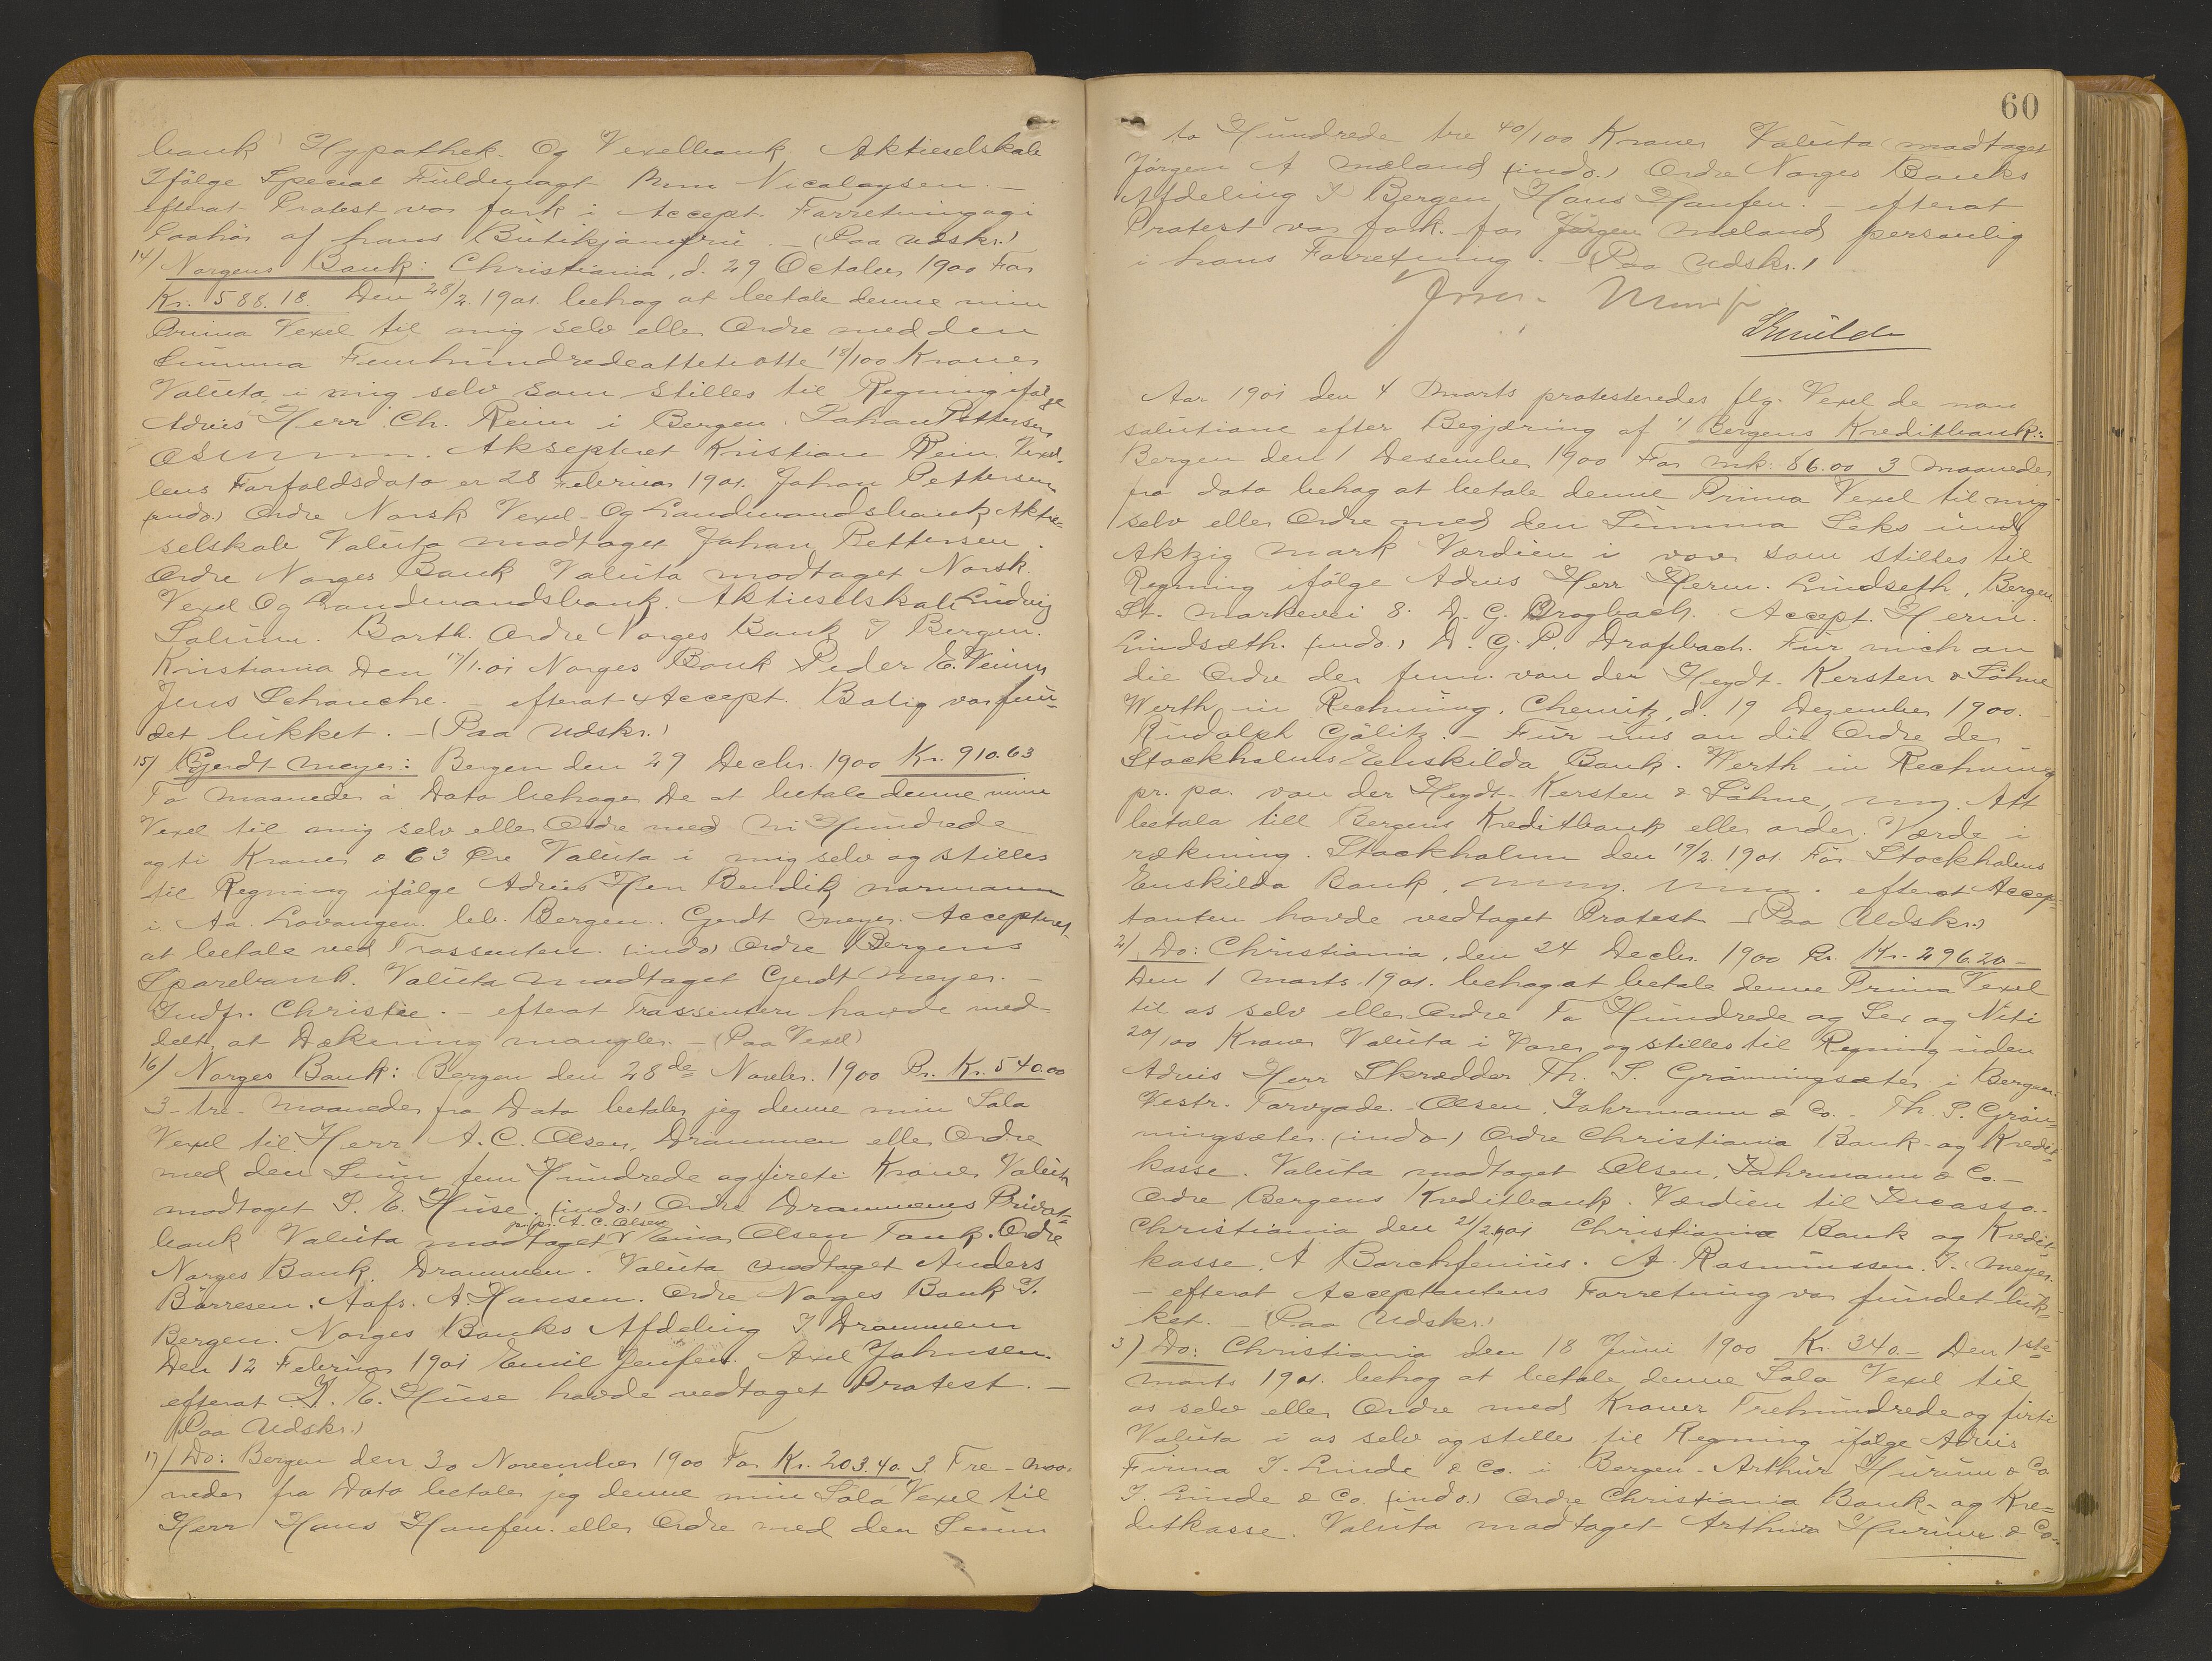 bank Hypothek- Og Vexelbank Aktieselskab
Ifölge Special Fuldmagt Nicolaysen. —
efterat Protest var fork. i Accept. Forretning ogi
Paahör af hans Butikjomfru. — (Paa Udskr.)
14/ Norgens Bank: Christiania, d. 29 October 1900 For
Kr. 588.18. Den 28/2. 1901. behag at betale denne min
Prima Vexel til mig selv eller Ordre med den
Summa Femhundredeottetiotte 18/100 Kroner
Valuta i mig selv som stilles til Regning ifølge
Advis Herr Ch. Reim i Bergen. Johan Pettersen
Akseptret Kristian Reim. Vexel-
lens Forfaldsdato er 28 Februar 1901. Johan Pettersen
(indo.) Ordre Norsk Vexel- Og Landmandsbank Aktie-
selskab Valuta modtaget Johan Pettersen.
Ordre Norges Bank Valuta modtaget Norsk
Vexel Og Landmandsbank. Aktieselskab Ludvig
Solum. Barth. Ordre Norges Bank I Bergen.
Kristiania den 17/1.01 Norges Bank Peder E.
Jens Schanche. — efterat Accept. Bolig var fun-
det lukket. — (Paa Udskr.)
15/ Gerdt Meyer: Bergen den 29 Decbr. 1900 Kr. 910.63
To Maaneder à Dato behager De at betale denne min
Vexel til mig selv eller Ordre med Ni Hundrede
og ti Kroner & 63 Øre Valuta i mig selv og stilles
til Regning ifölge Advis Herr Bendik Normann
i Aa Lovangen. lib. Bergen. Gerdt Meyer. Accepteret
at betale ved Trassenten. (indo) Ordre Bergens
Sparebank. Valuta modtaget Gerdt Meyer. —
Indfr. Christie. — efterat Trassenten havde med-
delt, at Dækning mangler. — (Paa Vexel)
16/ Norges Bank: Bergen den 28de Novbr. 1900 Pr. Kr. 540.00
3- tre- Maaneder fra Dato betaler jeg denne min Sola
Vexel til Herr A. C. Olsen, Drammen eller Ordre
med den Sum fem Hundrede og fireti Kroner Valuta
modtaget P. E. Huse. (indo.) Ordre Drammens Privat-
pr.pr. A. C. Olsen
bank Valuta modtaget Einar Olsen Tank. Ordre
Norges Bank. Drammen. Valuta modtaget Anders
Börresen. Aafs. A. Hansen. Ordre Norges Bank I.
Bergen. Norges Banks Afdeling I Drammen
Den 12 Februar 1901 Emil Jensen. Axel Johnsen.
efterat P. E. Huse havde vedtaget Protest. —
(Paa Udskr.)
17/ Do: Bergen den 30 November 1900 For Kr. 203.40. 3 Tre- Maa-
neder fra Dato betaler jeg denne min Sola Vexel til
Herr Hans Hansen. eller Ordre med den Sum
60
to Hundrede tre 40/100 Kroner Valuta modtaget
Jörgen A Mæland (indo.) Ordre Norges Banks
Afdeling I Bergen Hans Hansen. — efterat
Protest var fork. for Jörgen Mæland personlig
i hans Forretning. — (Paa Udskr.)
Aar 1901 den 4 Marts protesteredes flg. Vexel de non
solutione efter Begjæring af 1/ Bergens Kreditbank:
Bergen den 1 Desember 1900 For mk: 86.00 3 Maaneder
fra dato behag at betale denne Prima Vexel til mig
selv eller Ordre med den Summa Seks und
Aktzig Mark Værdien i varer som stilles til
Regning ifölge Advis Herr Herm. Lindseth, Bergen
St. Markevei 8. D. G. Accept. Herm.
Lindsæth. (indo.) D. G. P. Für mich an
die Ordre der firm. von der Heydt- Kersten & Söhne
Werth in Rechnung. Chemitz, d. 19 Dezember 1900. —
Rudolph Gölitz. — Für uns an die Ordre der
Stockholms Enskilda Bank. Werth in Rechnung
pr. pa. von der Heydt- Kersten & Söhne, Att
betala till Bergens Kreditbank eller order. Værde i
rækning. Stockholm den 19/2. 1901. För Stockholms
Enskilda Bank. efterat Accep-
tanten havde vedtaget Protest (Paa Udskr.)
2/ Do: Christiania, den 24 Decbr. 1900 Pr. Kr. 296.20 —
Den 1 Marts 1901. behag at betale denne Prima Vexel
til os selv eller Ordre To Hundrede og Sex og Niti
20/100 Kroner Valuta i Varer og stilles til Regning uden
Advis Herr Skrædder Th. S. Grönningsæter i Bergen.
Vestr. Torvgade. — Olsen, Fahrmann & Co. — Th. S. Grön-
ningsæter. (indo) Ordre Christiania Bank- og Kredit-
kasse. Valuta modtaget Olsen, Fahrmann & Co. —
Ordre Bergens Kreditbank. Værdien til Incasso. —
Christiania den 21/2.1901 Christiania Bank og Kredit-
kasse. A Borchgenius. A. Rasmussen. I. Meyer.
— efterat Acceptantens Forretning var fundet luk-
ket. — (Paa Udskr.)
3/ Do: Christiania den 18 Juni 1900 Kr. 340.— Den 1ste
Marts 1901. behag at betale denne Sola Vexel til
os selv eller Ordre med Kroner Trehundrede og firti
Valuta i os selv og stilles til Regning ifölge Advis
Firma I. Linde & Co. i Bergen- Arthur Hurum & Co
I. Linde & Co. (indo.) Ordre Christiania Bank- og Kre-
ditkasse. Valuta modtaget Arthur Hurum & Co-